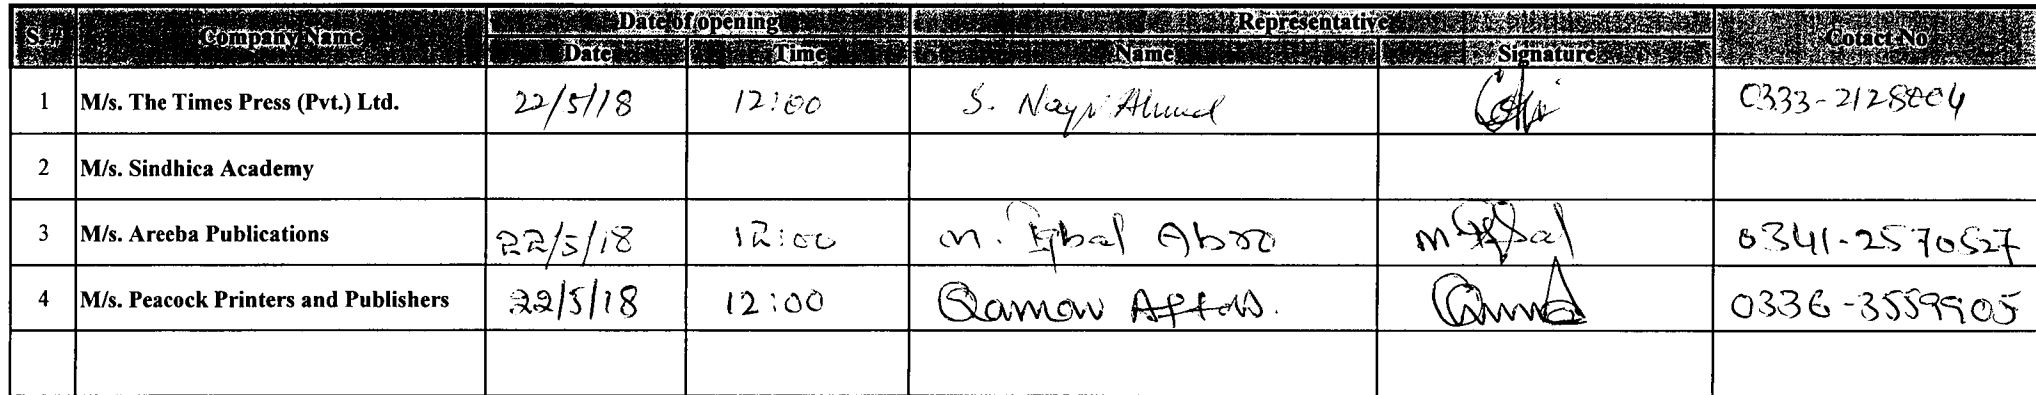 S. # Company Name Date of opening Representative Cotact No
Date Time Name Signature
1 M/s. The Times Press (Pvt.) Ltd. 22/5/18 12:00 S. Ahmed 0333-2128004
2 M/s. Sindhica Academy
3 M/s. Areeba Publications 22/5/18 12:00 M. Iqbal Abro M Iqbal 0341-2570527
4 M/s. Peacock Printers and Publishers 22/5/18 12:00 Qamar 0336-3559905